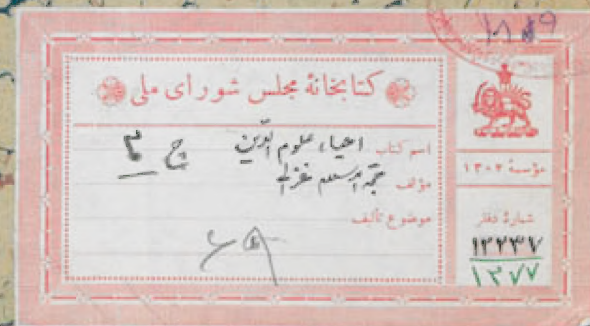 ۱۸۵۹
کتابخانهٔ مجلس شورای ملی
اسم کتاب احیاء علوم الدین ج ۳
مؤلف حجة الاسلام غزالی
موضوع تألیف
مؤسسهٔ ۱۳۰۲
شمارهٔ دفتر
۱۲۲۳۷
۱۲۷۷